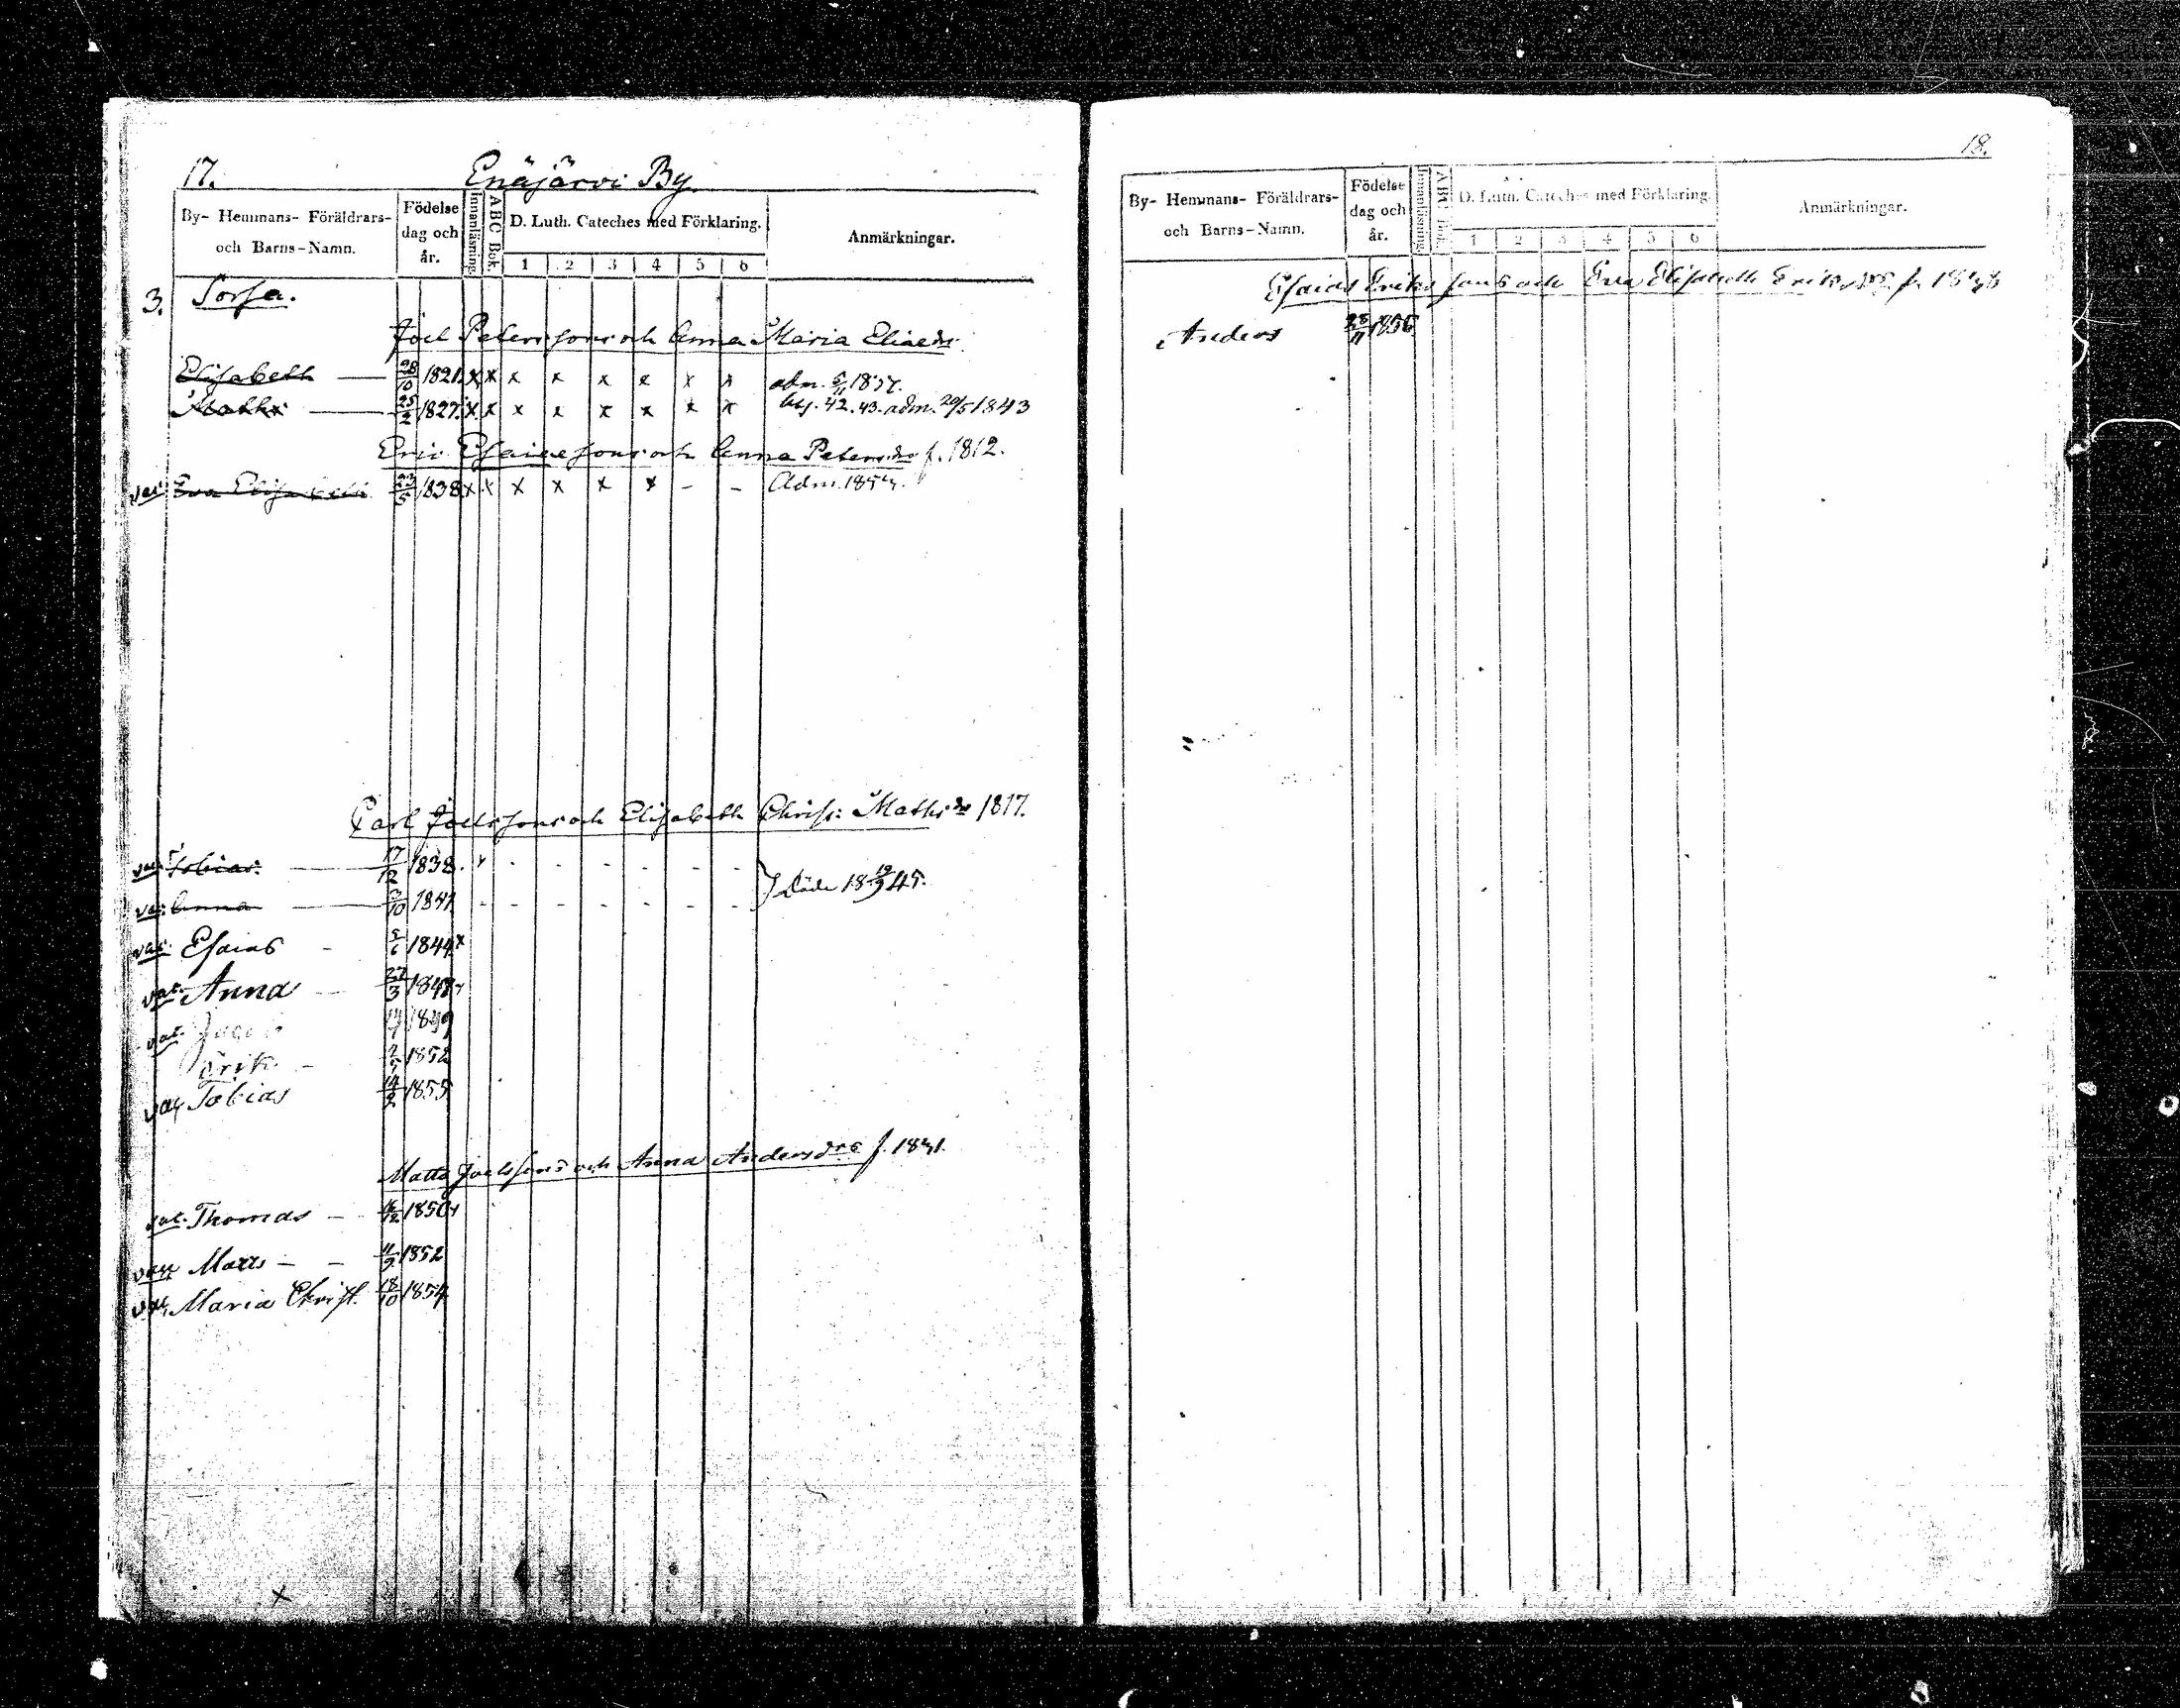 17. Enäjärvi By
By- Hemmans- Föräldrars- och Barns-Namn. Födelse dag och år. Innanläsning. ABC Bok. D. Luth. Cateches med Förklaring. 1 2 3 4 5 6 Anmärkningar.
3. Sorsa.
Joel Petersons och Anna Maria Eliaedr
Elisabeth — 28/10 1821. x x x x x x x x adm.
Matths — 25/2 1827. x x x x x x x x 42. 43. adm. 20/5 1843
Eric Esaiaesons och Anna Petersdr f. 1812.
vac. Eva Elisabeth 23/5 1838 x x x x x x - - Adm.
Carl Joelssons och Elisabeth Christ: Mathsdr 1817.
vac. Tobias — 17/12 1838.
vac. Anna — /10 1841 - - - - - - - } Döde 18 19/9 45.
vac. Esaias - 5/6 1844 x
vac. Anna - 27/3 1847
vac. Jacob 1849
Erik. - 1852
vac Tobias 14/2 1855
Matts Joelssons och Anna Andersdrs f.
vac. Thomas — /12 1850
vac Matts - - 1852
vac Maria Christ. 18/10 1854
x
18.
By- Hemmans- Föräldrars- och Barns-Namn. Födelse dag och år. Innanläsning. ABC Bok. D. Luth. Cateches med Förklaring. 1 2 3 4 5 6 Anmärkningar.
Esaias Eriks sons och Eva Elisabeth Eriksdrs f.
Anders 28/11 1856